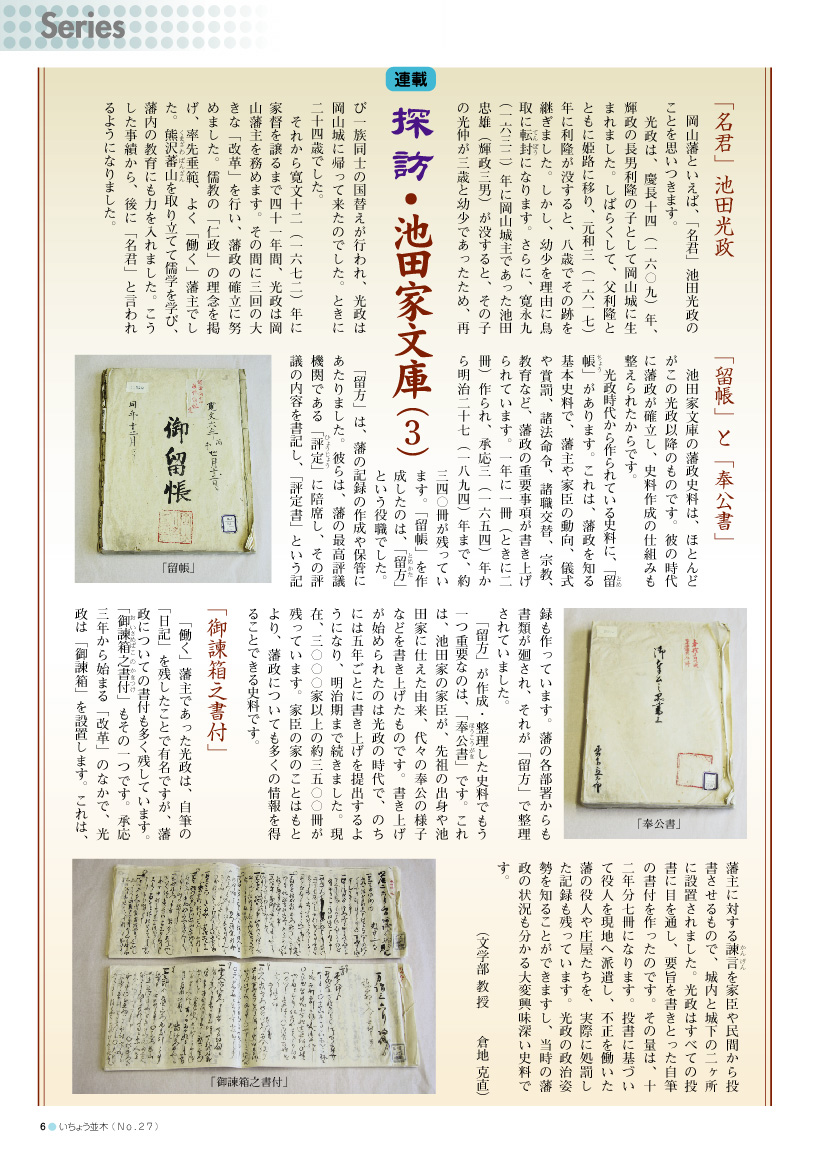 Series
連載
探訪・池田家文庫(3)
「名君」池田光政
岡山藩といえば、「名君」池田光政の
ことを思いつきます。
光政は、慶長十四(一六〇九)年、
輝政の長男利隆の子として岡山城に生
まれました。しばらくして、父利隆と
ともに姫路に移り、元和三(一六一七)
年に利隆が没すると、八歳でその跡を
継ぎました。しかし、幼少を理由に鳥
取に転封になります。さらに、寛永九
(一六三二)年に岡山城主であった池田
忠雄(輝政三男)が没すると、その子
の光仲が三歳と幼少であったため、再
び一族同士の国替えが行われ、光政は
岡山城に帰って来たのでした。ときに
二十四歳でした。
それから寛文十二(一六七二)年に
家督を譲るまで四十一年間、光政は岡
山藩主を務めます。その間に三回の大
きな「改革」を行い、藩政の確立に努
めました。儒教の「仁政」の理念を掲
げ、率先垂範、よく「働く」藩主でし
た。熊沢蕃山を取り立てて儒学を学び、
藩内の教育にも力を入れました。こう
した事績から、後に「名君」と言われ
るようになりました。
「留帳」と「奉公書」
池田家文庫の藩政史料は、ほとんど
がこの光政以降のものです。彼の時代
に藩政が確立し、史料作成の仕組みも
整えられたからです。
光政時代から作られている史料に、「留
帳」があります。これは、藩政を知る
基本史料で、藩主や家臣の動向、儀式
や賞罰、諸法命令、諸職交替、宗教、
教育など、藩政の重要事項が書き上げ
られています。一年に一冊(ときに二
冊)作られ、承応三(一六五四)年か
ら明治二十七(一八九四)年まで、約
三四〇冊が残ってい
ます。「留帳」を作
成したのは、「留方」
という役職でした。
「留方」は、藩の記録の作成や保管に
あたりました。彼らは、藩の最高評議
機関である「評定」に陪席し、その評
議の内容を書記し、「評定書」という記
録も作っています。藩の各部署からも
書類が廻され、それが「留方」で整理
されていました。
「留方」が作成・整理した史料でもう
一つ重要なのは、「奉公書」です。これ
は、池田家の家臣が、先祖の出身や池
田家に仕えた由来、代々の奉公の様子
などを書き上げたものです。書き上げ
が始められたのは光政の時代で、のち
には五年ごとに書き上げを提出するよ
うになり、明治期まで続きました。現
在、三〇〇〇家以上の約三五〇〇冊が
残っています。家臣の家のことはもと
より、藩政についても多くの情報を得
ることできる史料です。
「御諫箱之書付」
「働く」藩主であった光政は、自筆の
「日記」を残したことで有名ですが、藩
政についての書付も多く残しています。
「御諫箱之書付」もその一つです。承応
三年から始まる「改革」のなかで、光
政は「御諫箱」を設置します。これは、
藩主に対する諫言を家臣や民間から投
書させるもので、城内と城下の二ヶ所
に設置されました。光政はすべての投
書に目を通し、要旨を書きとった自筆
の書付を作ったのです。その量は、十
二年分七冊になります。投書に基づい
て役人を現地へ派遣し、不正を働いた
藩の役人や庄屋たちを、実際に処罰し
た記録も残っています。光政の政治姿
勢を知ることができますし、当時の藩
政の状況も分かる大変興味深い史料で
す。
(文学部 教授 倉地 克直)
御留帳
「留帳」
「奉公書」
「御諫箱之書付」
6 ● いちょう並木(No.27)